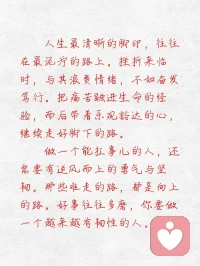 人生最清晰的脚印，往往
在最泥泞的路上。挫折来临
时，与其浪费情绪，不如奋发
笃行。把痛苦融进生命的经
验，而后带着乐观豁达的心，
继续走好脚下的路。
做一个能扛事儿的人，还
需要有迎风而上的勇气与坚
韧。那些难走的路，都是向上
的路。好事往往多磨，你要做
一个越来越有韧性的人。